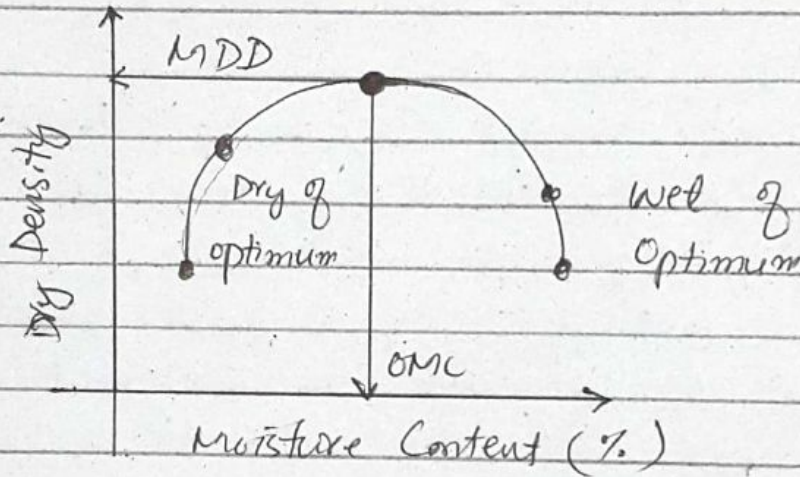 MDD
Dry Density
Dry of
optimum
Wet of
Optimum
OMC
Moisture Content (%)